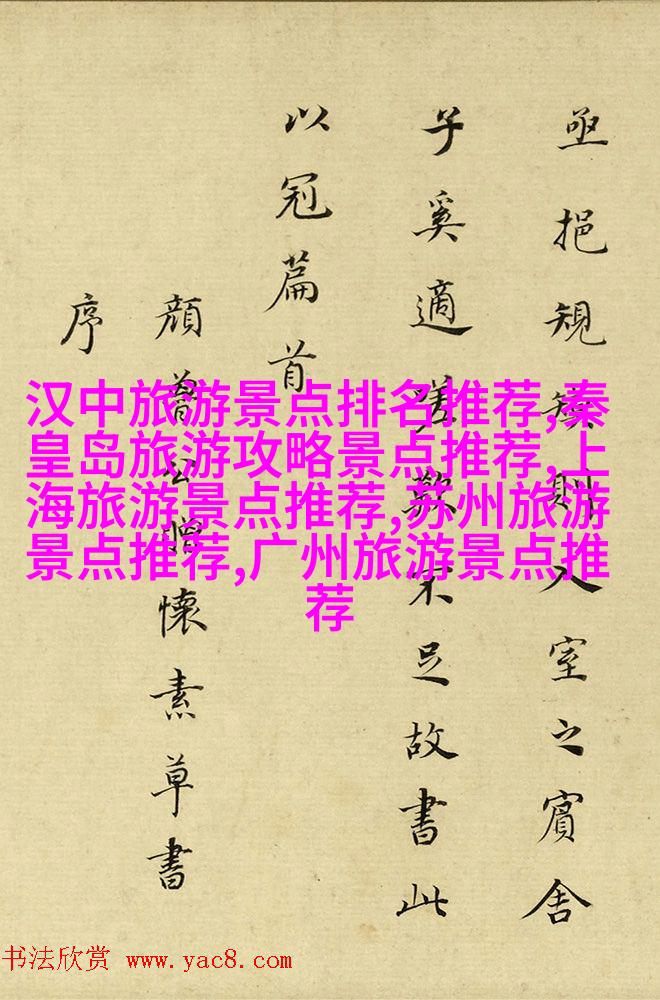 亟挹規矩則入室之賓舍
子奚適嗟歎不足故書此
以冠篇首
顏魯公贈懷素草書
序
汉中旅游景点排名推荐,秦
皇岛旅游攻略景点推荐,上
海旅游景点推荐,苏州旅游
景点推荐,广州旅游景点推
荐
书法欣赏 www.yac8.com